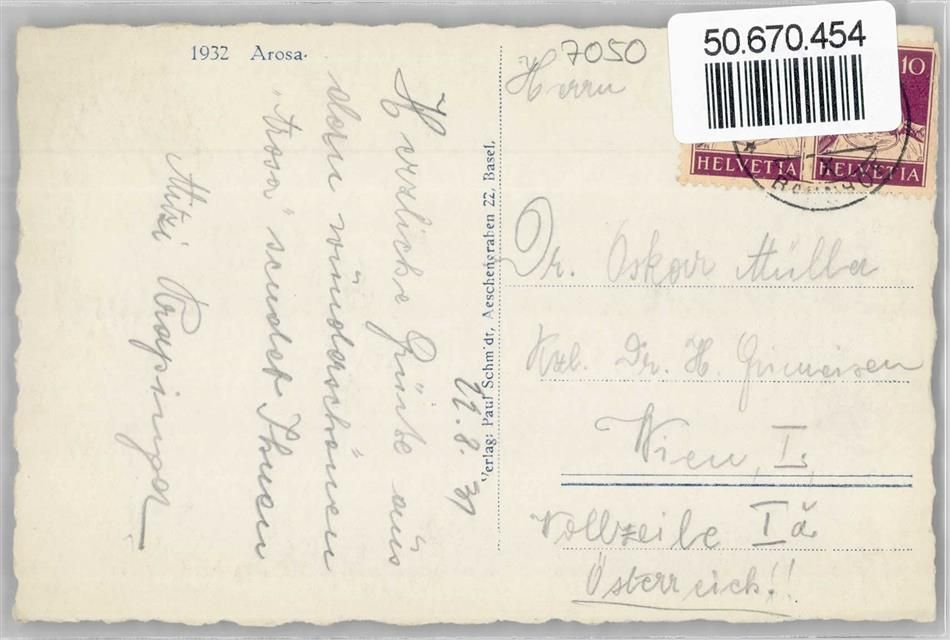 1932 Arosa.
Herzliche Grüße aus
dem wunderschönen
"Arosa" sendet Ihnen
Mitzi
22.8.31
Verlag: Paul Schmidt, Aeschengraben 22, Basel.
7050
50.670.454
10
HELVETIA HELVETIA
Herrn
Dr. Oskar Müller
Kzl. Dr. H.
Wien, I.,
Wollzeile 1a
Österreich!!